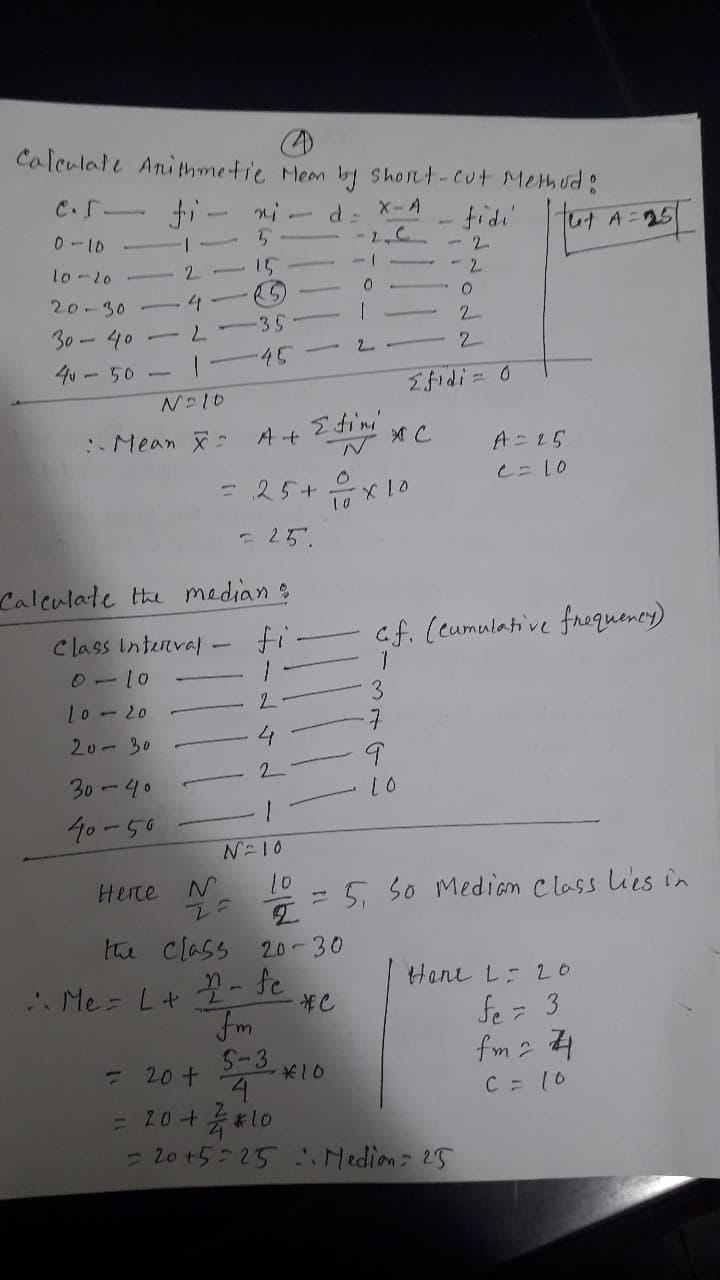 ④
Calculate Arithmetic Mean by Short-cut Method:
C.I — fi — xi — d = x-A/C — fidi
Let A = 25
0-10 — 1 — 5 — -2 — -2
10-20 — 2 — 15 — -1 — -2
20-30 — 4 — 25 — 0 — 0
30-40 — 2 — 35 — 1 — 2
40-50 — 1 — 45 — 2 — 2
N=10 Σfidi = 0
∴ Mean x̄ = A + Σfini/N * C A = 25
= 25 + 0/10 x 10 C = 10
= 25.
Calculate the median:
Class Interval — fi — c.f. (cumulative frequency)
0-10 — 1 — 1
10-20 — 2 — 3
20-30 — 4 — 7
30-40 — 2 — 9
40-50 — 1 — 10
N=10
Here N/2 = 10/2 = 5, So Median Class lies in
the class 20-30
∴ Me = L + n/2 - fc/fm *C
= 20 + 5-3/4 *10
= 20 + 2/4 *10
= 20+5=25 ∴ Median = 25
Here L = 20
fc = 3
fm = 4
C = 10